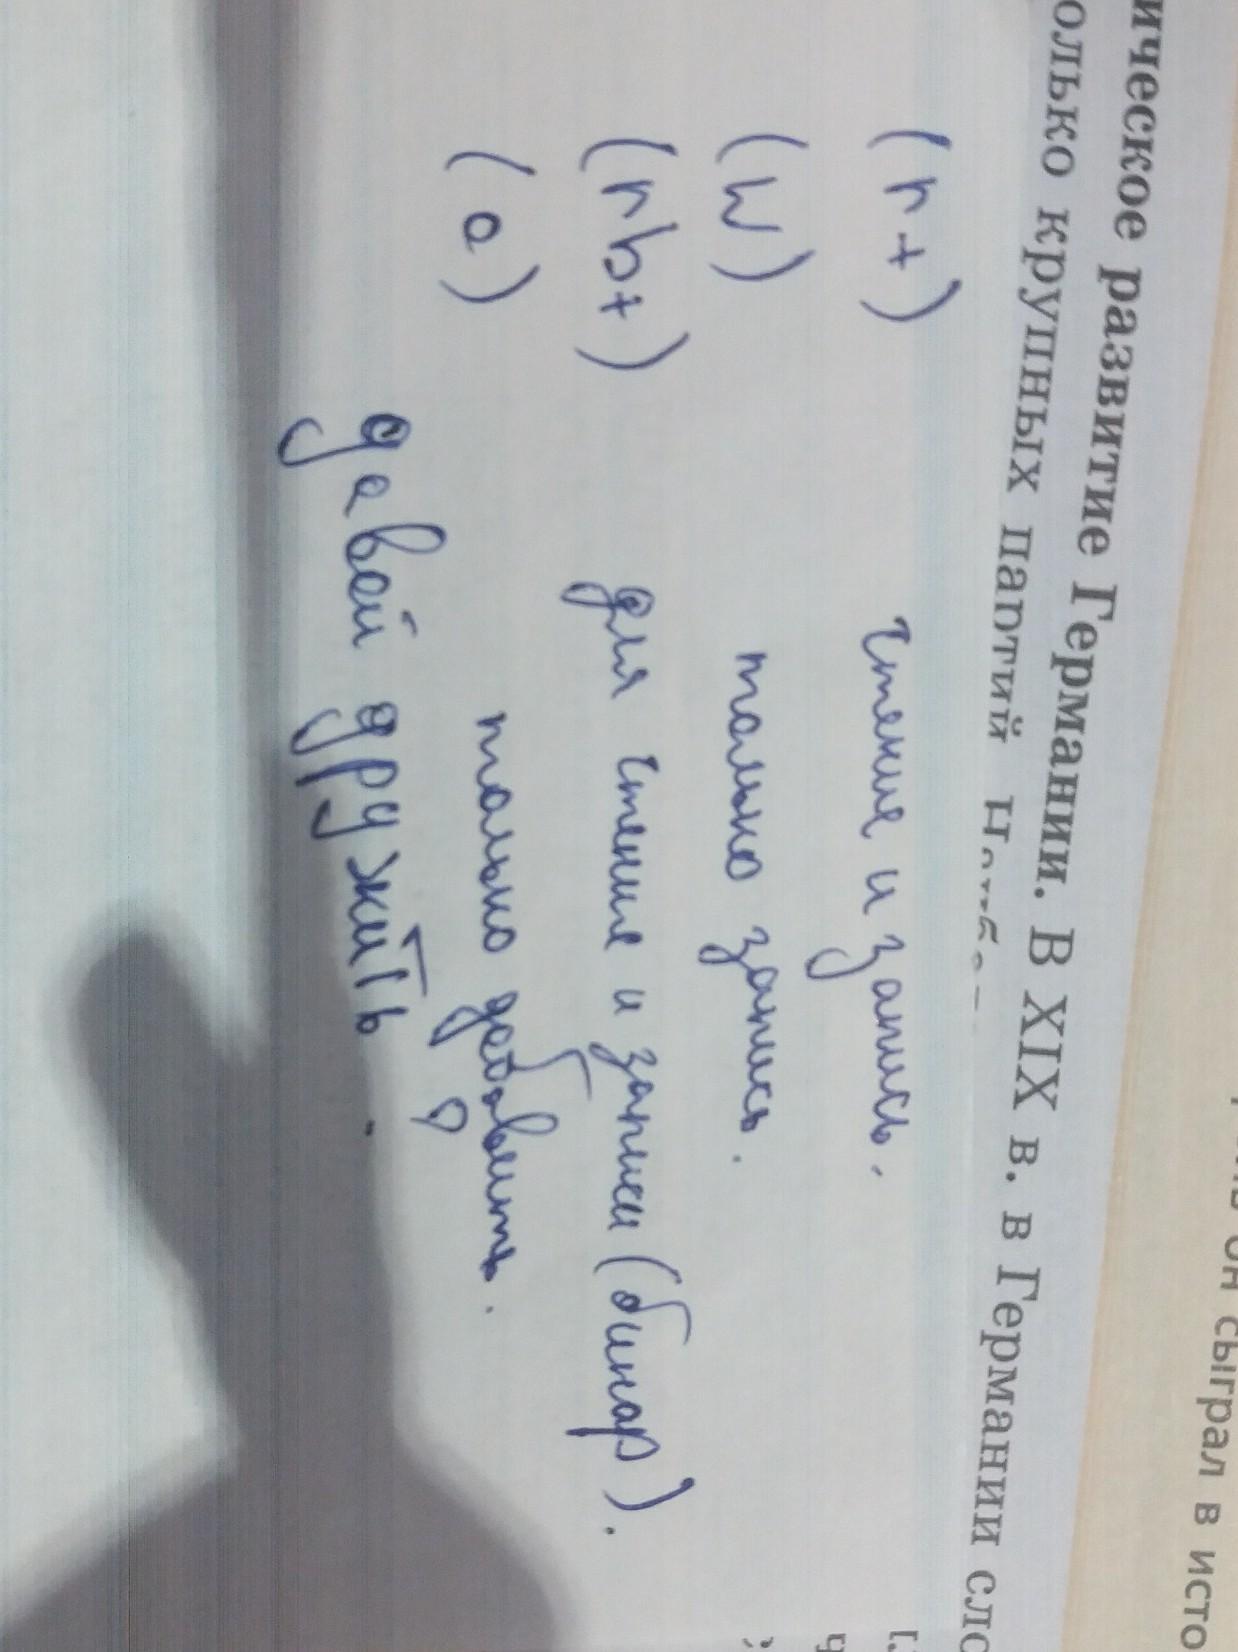 он сыграл в исто
ическое развитие Германии. В XIX в. в Германии сло
олько крупных партий
(r+) чтение и запись.
(w) только запись.
(rb+) для чтение и записи (бинар).
(a) только добавить.
давай дружить?